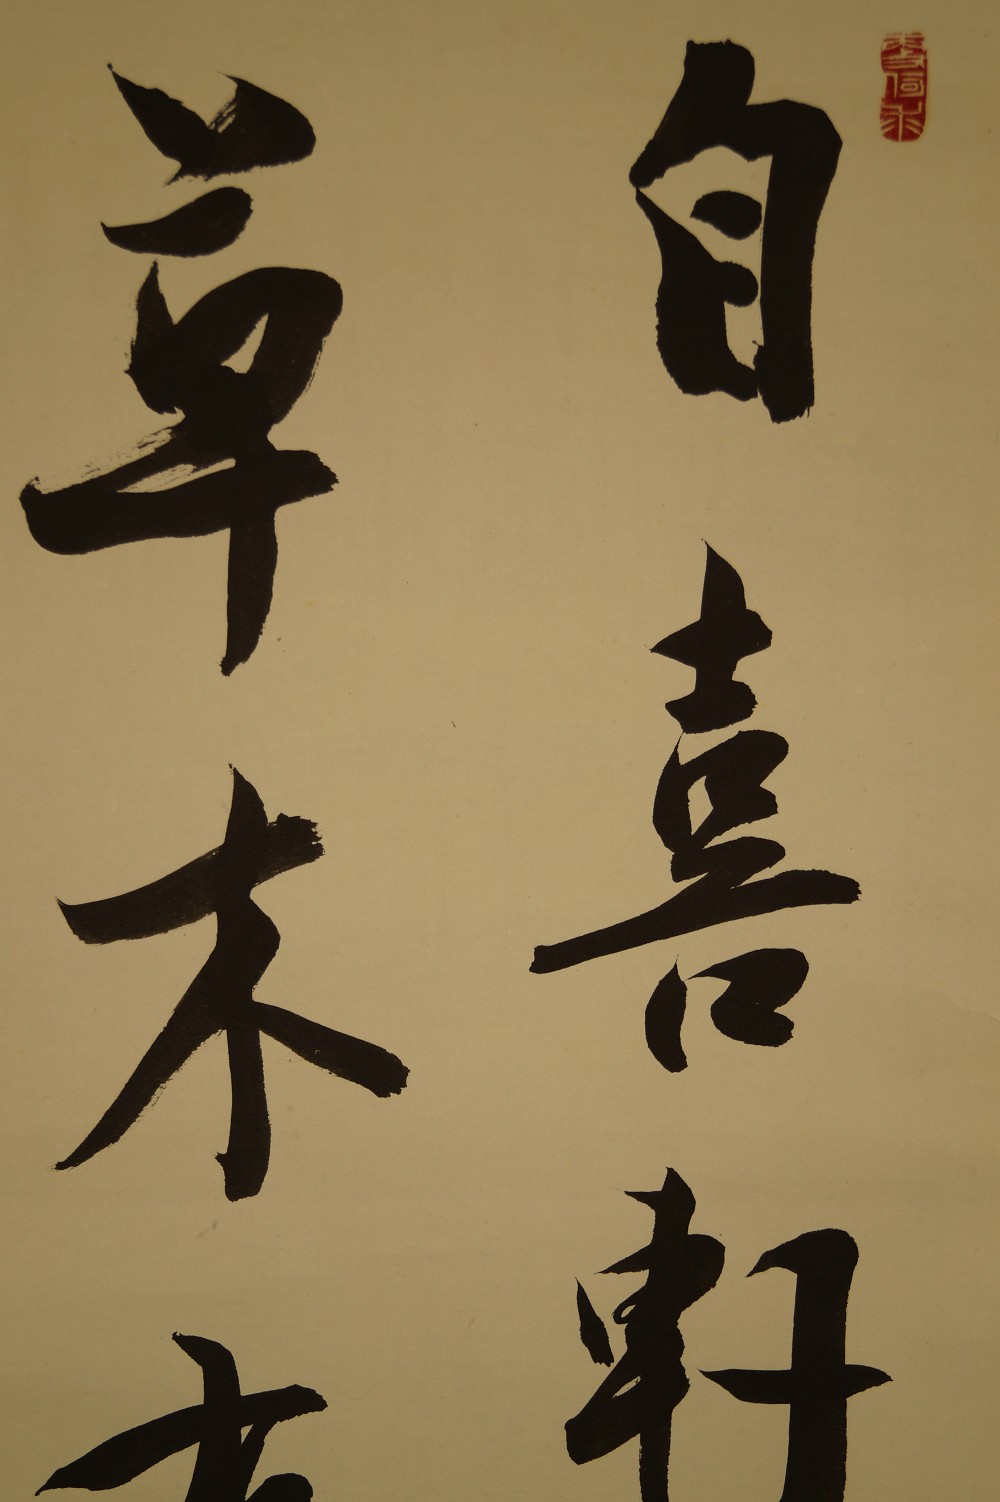 自喜軒
草木